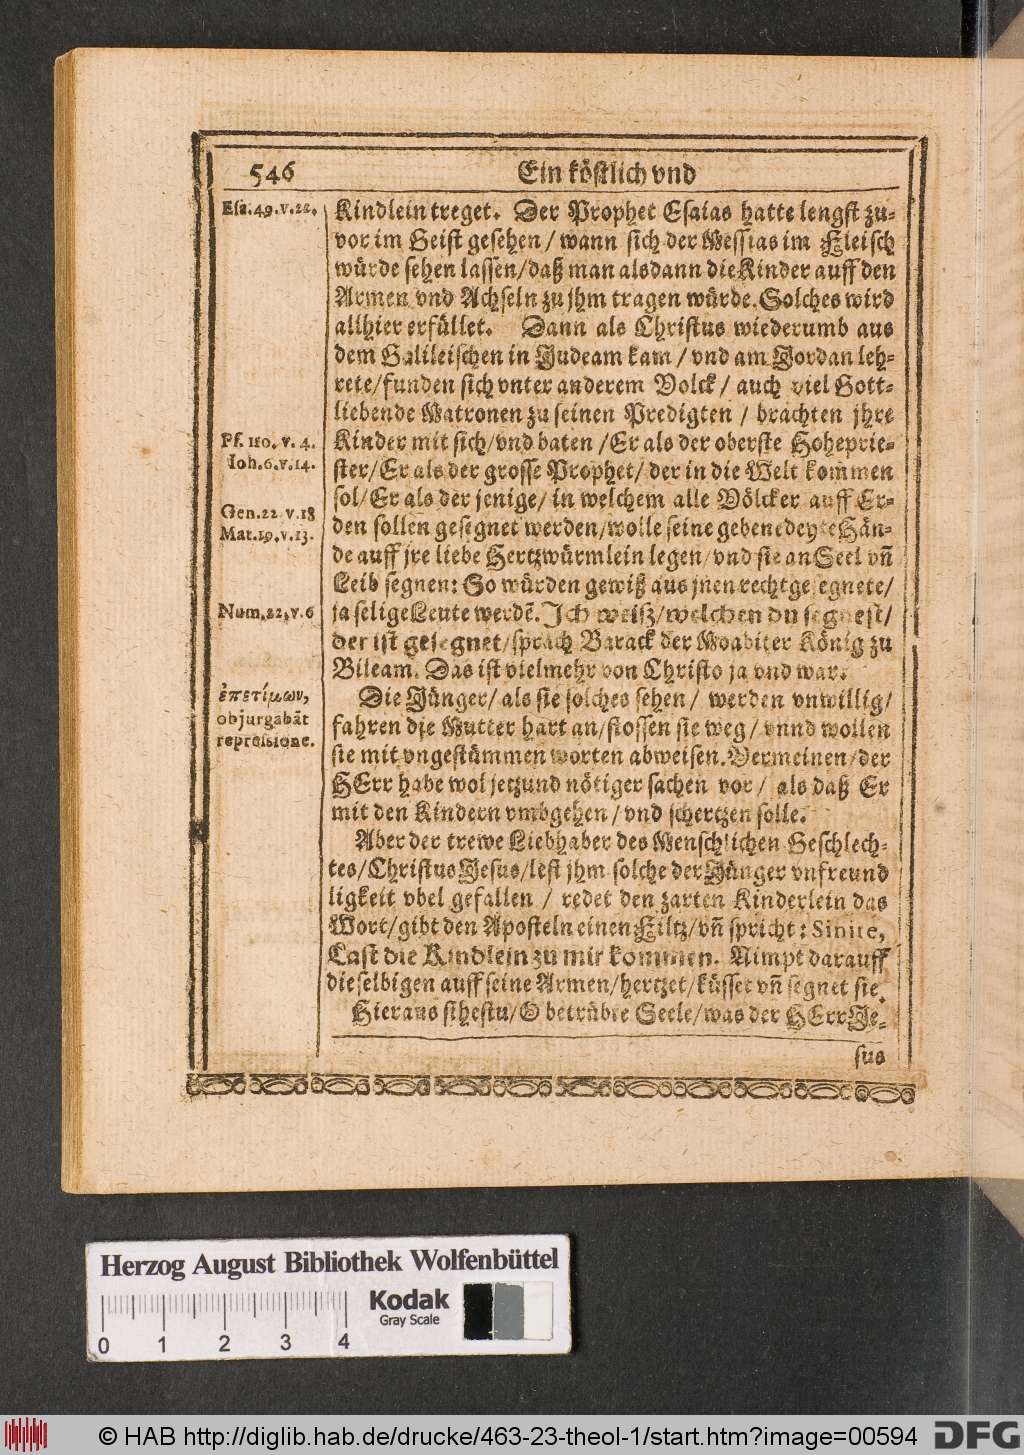 546 Ein köstlich vnd
Esa.49.v.22.
Kindlein treget. Der Prophet Esaias hatte lengst zu-
vor im Geist gesehen / wann sich der Messias im Fleisch
würde sehen lassen/daß man alsdann die Kinder auff den
Armen vnd Achseln zu jhm tragen würde. Solches wird
allhier erfüllet. Dann als Christus wiederumb aus
dem Galileischen in Judeam kam / vnd am Jordan leh-
rete/funden sich vnter anderem Volck / auch viel Gott-
liebende Matronen zu seinen Predigten / brachten jhre
Ps. 110. v. 4.
Kinder mit sich/vnd baten /Er als der oberste Hoheprie-
Ioh.6.v.14.
ster/Er als der grosse Prophet/ der in die Welt kommen
sol/Er als der jenige/ in welchem alle Völcker auff Er-
Gen.22 v.18
den sollen gesegnet werden/wolle seine gebenedeyte Hän-
Mat.19.v.13.
de auff jre liebe Hertzwürmlein legen/vnd sie an Seel vñ
Leib segnen: So würden gewiß aus jnen recht gesegnete/
Num.22.v.6
ja selige Leute werdẽ. Ich weiß/welchen du segnest/
der ist gesegnet/sprach Barack der Moabiter König zu
Bileam. Das ist vielmehr von Christo ja vnd war.
ἐπετίμων,
Die Jünger/ als sie solches sehen / werden vnwillig/
objurgabāt
fahren die Mutter hart an/stossen sie weg / vnnd wollen
reprehsione.
sie mit vngestümmen worten abweisen. Vermeinen/der
HErr habe wol jetzund nötiger sachen vor / als daß Er
mit den Kindern vmbgehen / vnd schertzen solle.
Aber der trewe Liebhaber des Menschlichen Geschlech-
tes/Christus Jesus/lest jhm solche der Jünger vnfreund
ligkeit vbel gefallen / redet den zarten Kinderlein das
Wort/gibt den Aposteln einen Filtz/vñ spricht: Sinite,
Last die Kindlein zu mir kommen. Nimpt darauff
dieselbigen auff seine Armen/hertzet/küsset vñ segnet sie.
Hieraus sihestu/O betrübte Seele/was der HErr Je-
sus
Herzog August Bibliothek Wolfenbüttel
Kodak
Gray Scale
0 1 2 3 4
© HAB http://diglib.hab.de/drucke/463-23-theol-1/start.htm?image=00594
DFG